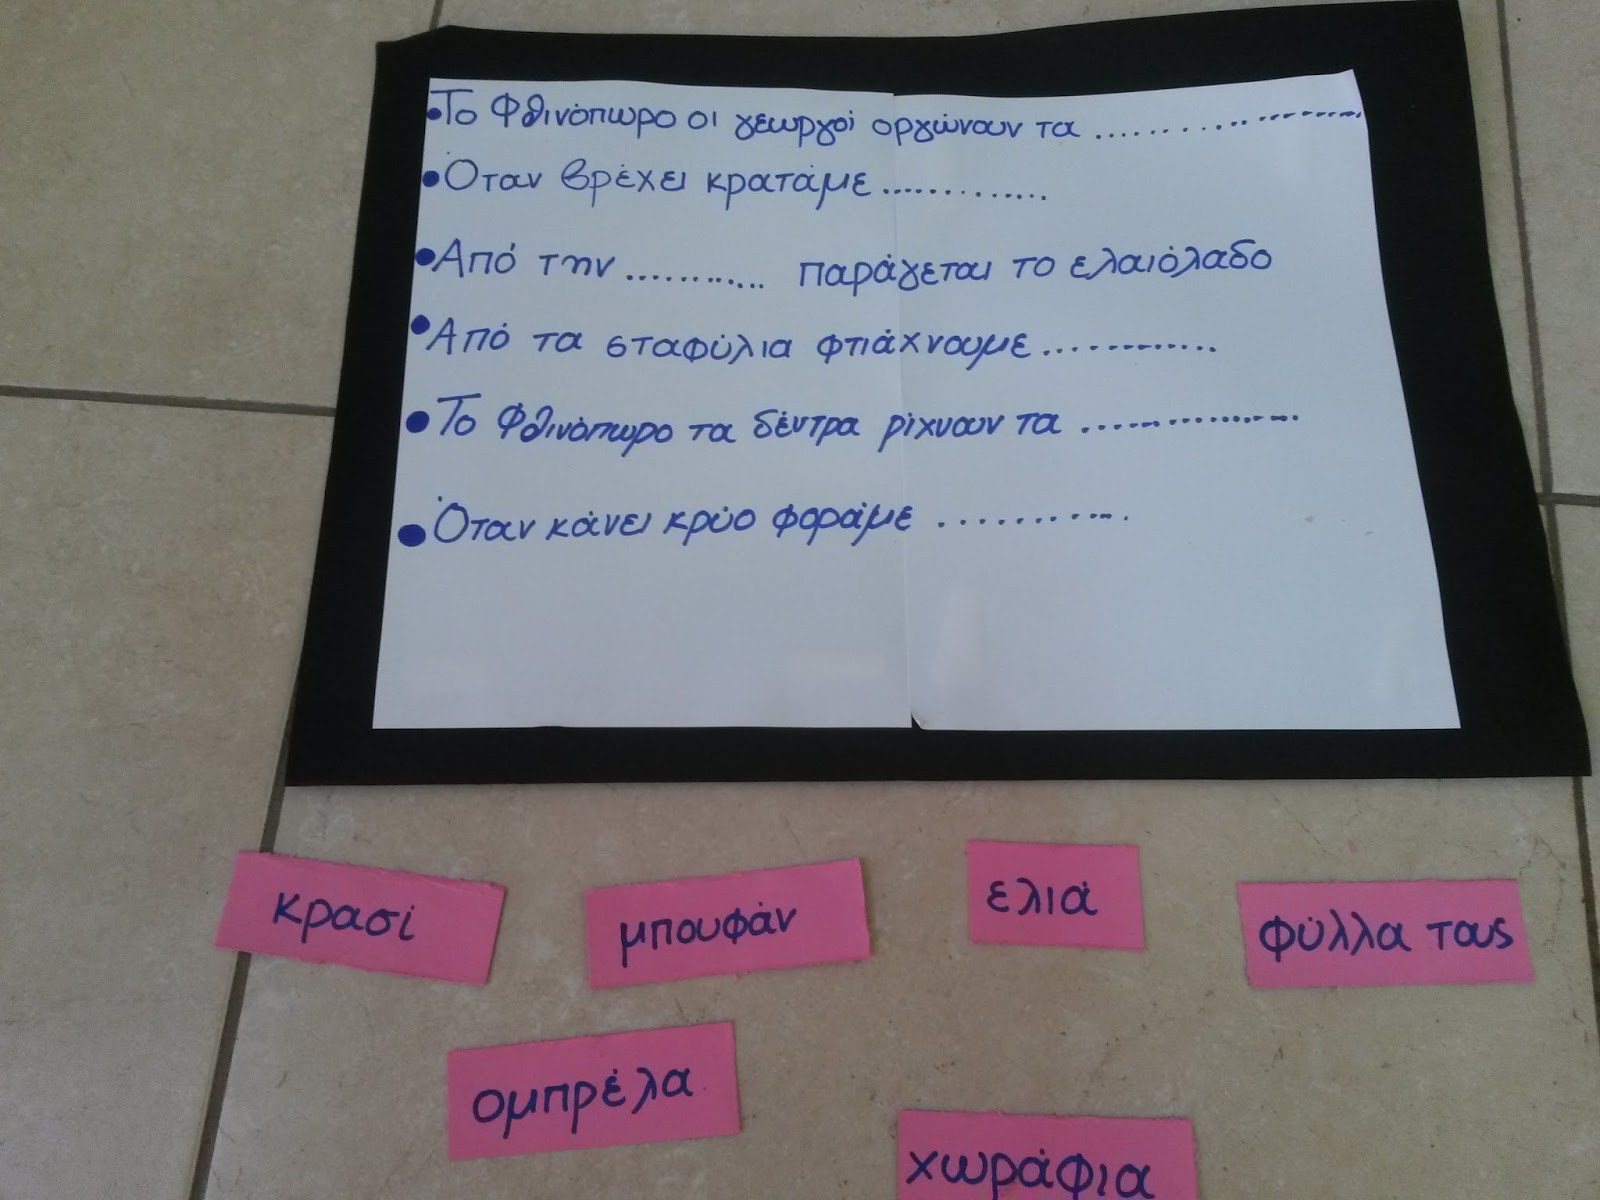 •Το Φθινόπωρο οι γεωργοί οργώνουν τα ....................
•Όταν βρέχει κρατάμε ..............
•Από την ............ παράγεται το ελαιόλαδο
•Από τα σταφύλια φτιάχνουμε .............
•Το Φθινόπωρο τα δέντρα ρίχνουν τα .................
•Όταν κάνει κρύο φοράμε ...........
κρασί
μπουφάν
ελιά
φύλλα τους
ομπρέλα
χωράφια